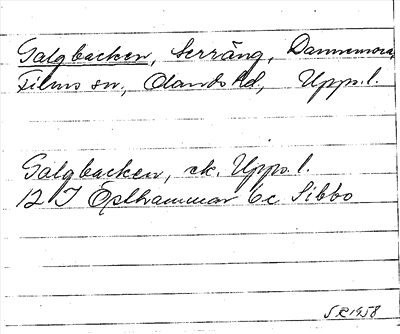 Galgbacken, terräng, Dannemora,
Films sn, Olands hd, Upps. l.
Galgbacken, ek. Upps. l.
12 I Östhammar 6c Sibbo
S R 1958